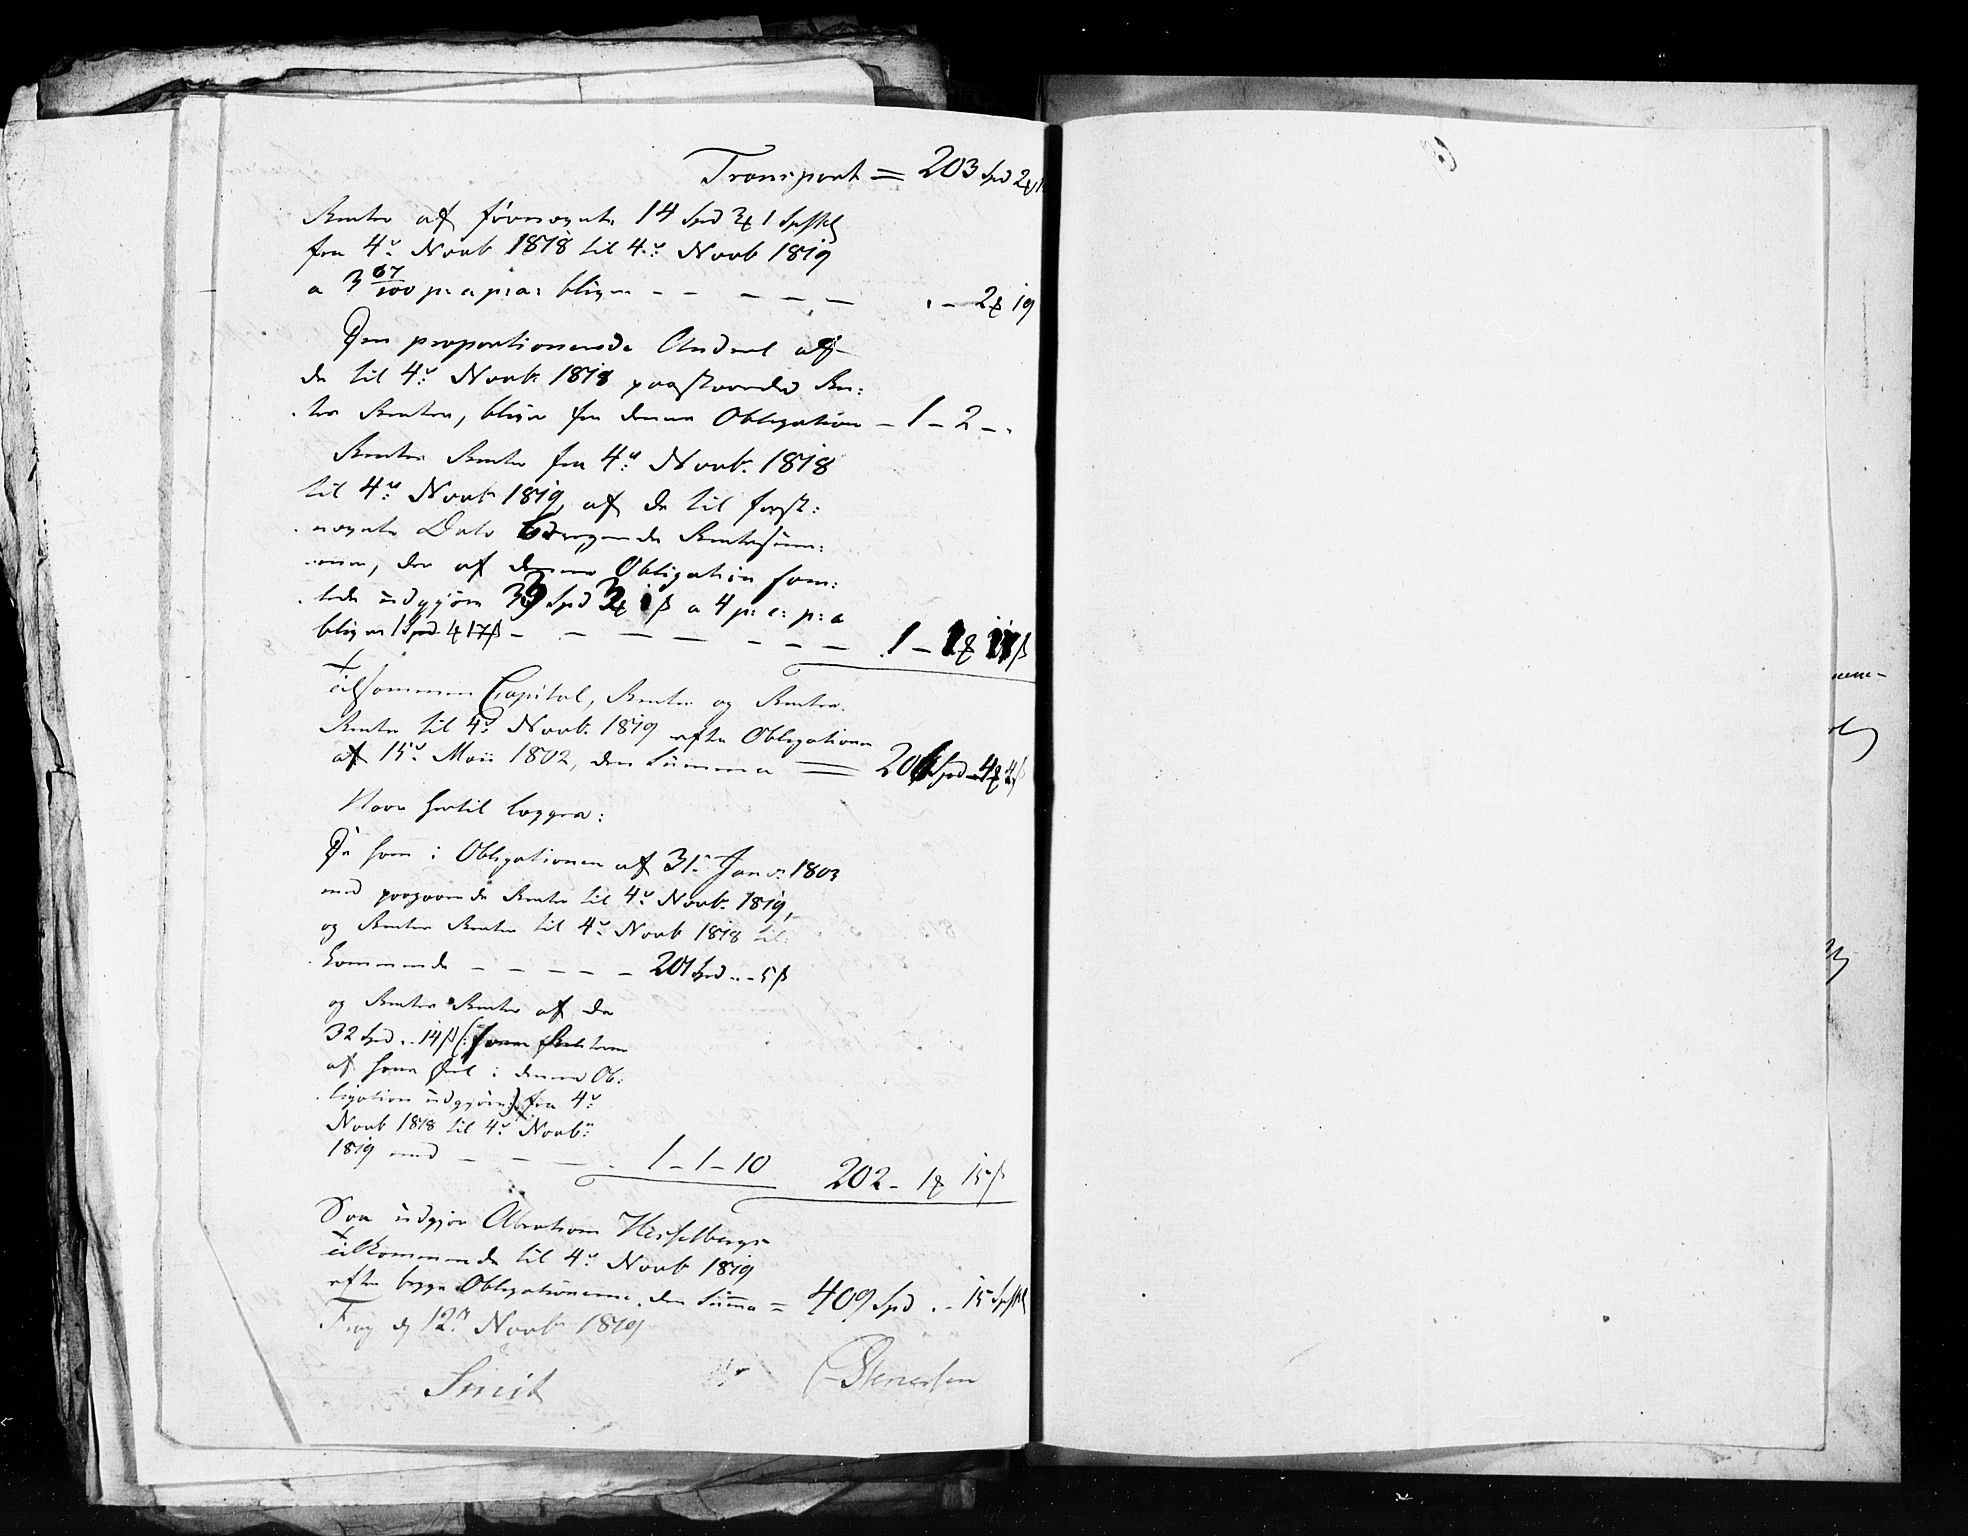 Transport = 203 Spd 2
Renter afførnævnte 14 Spd 3 1 Spsskl
fra 4de Novb 1818 til 4de Novb 1819
a 3 67/100 p: c: p: a: bliver - - - - - " - 2 19
Den proportionerede Andeel af
de til 4de Novb 1818 paastaaende Ren:
ters Renter, bliver for denne Obligation - 1 - 2 - "
Renters Renter fra 4de Novb. 1818
til 4de Novb 1819, af de til først:
nævnte Dato Rentesum:
mer, der af denne Obligation som:
udgjøre 39 Spd 3 1 ß a 4 p: c: p: a
bliver 1 Spd 17 ß - - - - - - - 1 - 1 11 ß
Tilsammen Capital, Renter og Renters
Renter til 4de Novb. 1819 efter Obligationen
af 15de Maii 1802, den Summa = 206 Spd 4 4 ß
Naar hertil lægges:
De ham i Obligationen af 31te Janv: 1803
med paagaaende Renter til 4de Novb. 1819,
og Renters Renter til 4de Novb 1818 til:
kommende - - - - - 201 Spd " - 5 ß
og Renters Renter af de
32 Spd " 14 ß (: som Renterne
af hans Deel i denne Ob:
ligation udgjøre:) fra 4de
Novb 1818 til 4de Novb:
1819 med - - - - 1 - 1 - 10 202 - 1 15 ß
Saa udgjør Abraham Hesselbergs
Tilkommende til 4de Novb 1819
efter begge Obligationerne, den Summa = 409 Spd " - 15 Spsskl
d 12te Novb 1819
Smit Stenersen